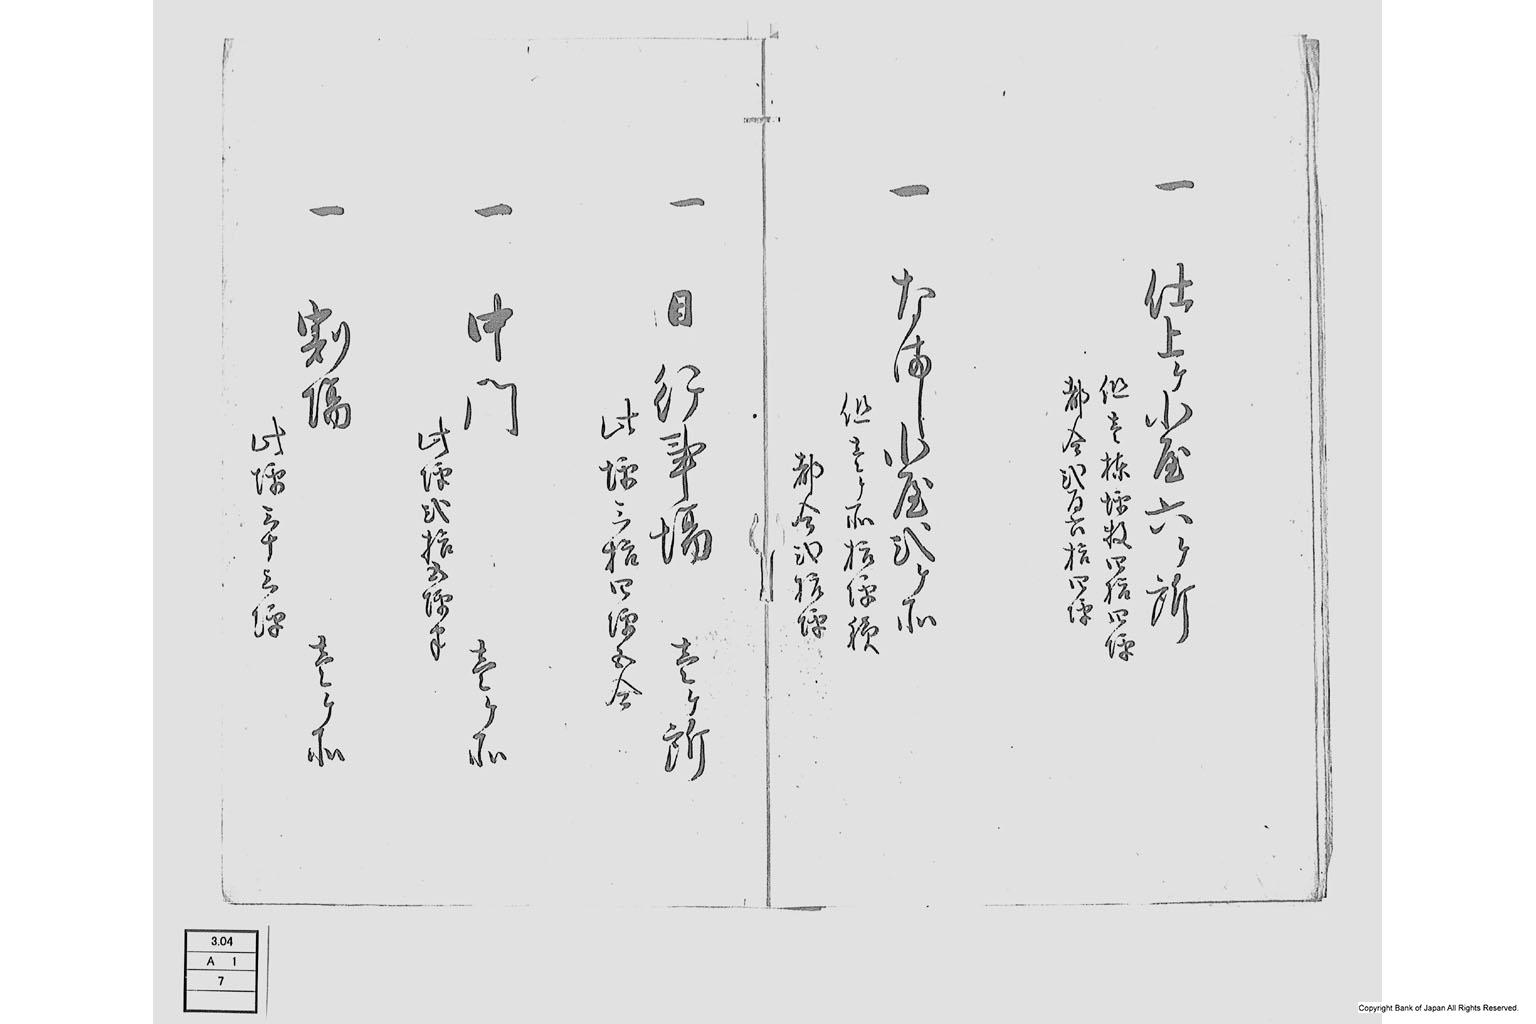 一 仕上ケ小屋六ケ所
但壱棟坪数四拾四坪
都合弐百六拾四坪
一 なまし小屋弐ケ所
但壱ケ所拾坪積
都合弐拾坪
一 目行事場 壱ケ所
此坪三拾四坪五合
一 中門 壱ケ所
此坪弐拾五坪半
一 割場 壱ケ所
此坪三十三坪
3.04
A 1
7
Copyright Bank of Japan All Rights Reserved.